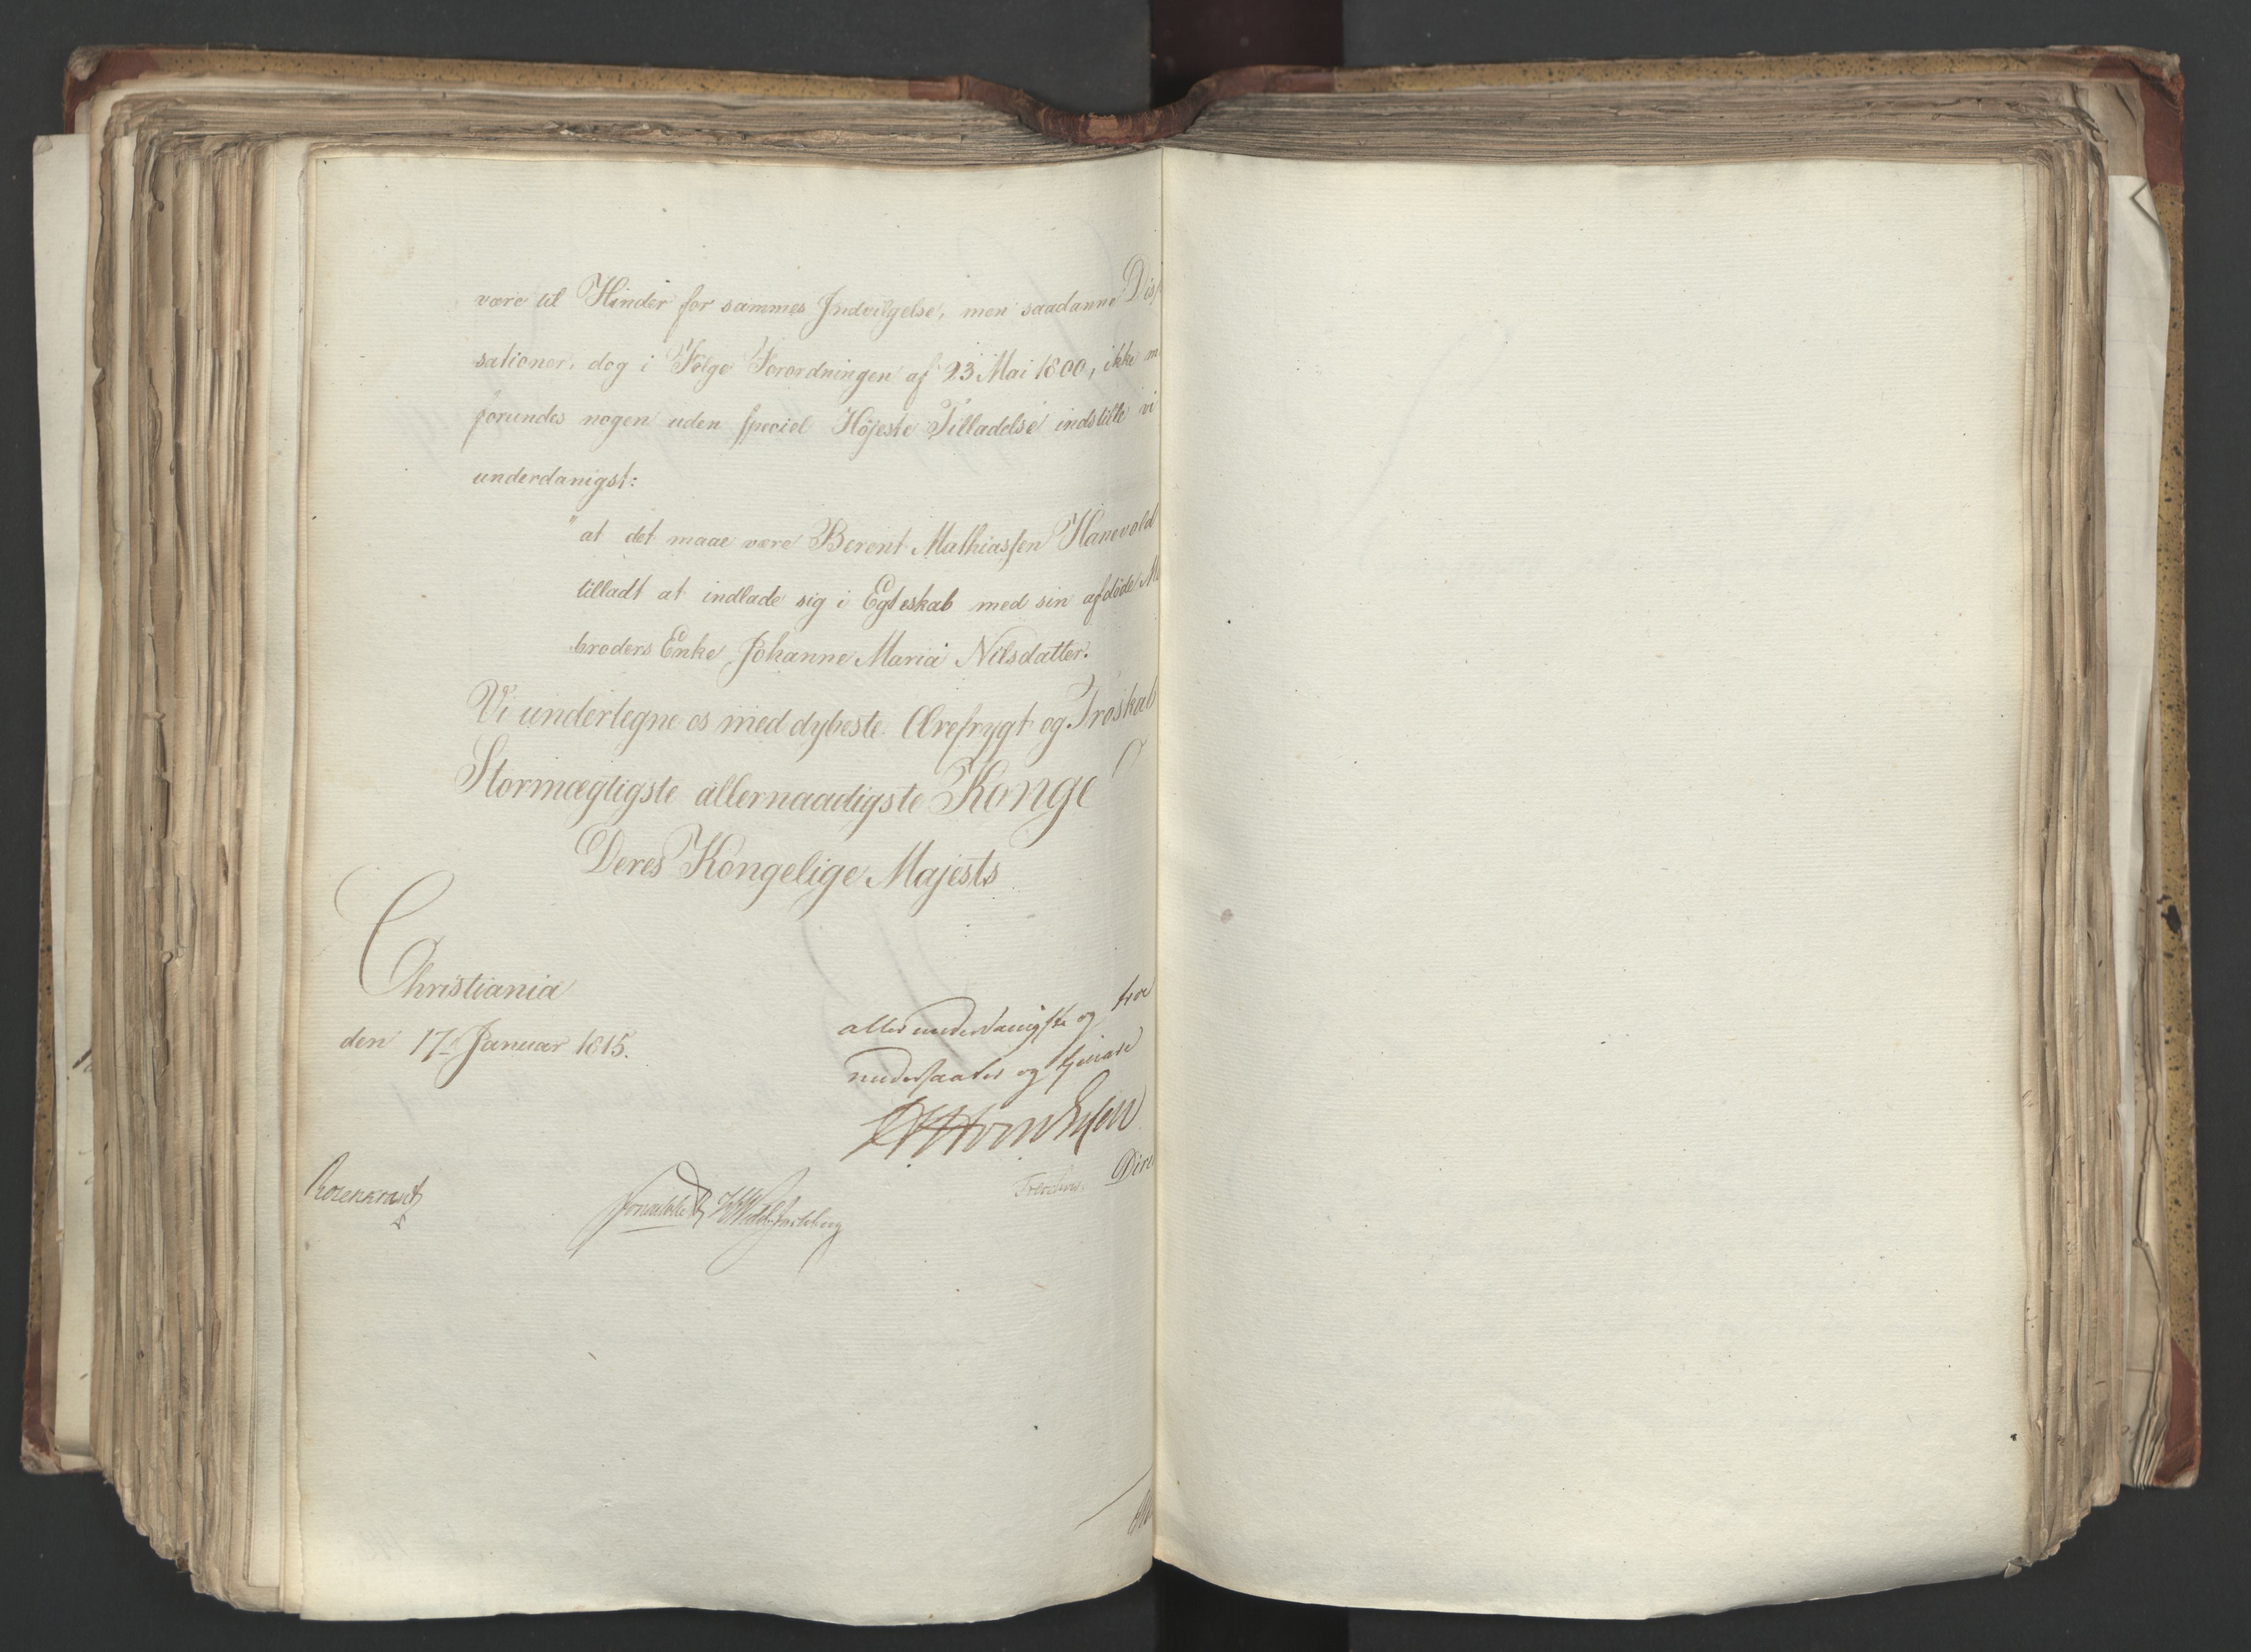 være til Hinder for sammes Indvilgelse, men saadanne Disp
sationer, dog i Følge Forordningen af 23 Mai 1800, ikke m
forundes nogen uden speciel Høieste Tilladelse indstille vi
underdanigst:
"at det maae være Berent Mathiassen Hanevold
tilladt at indlade sig i Egteskab med sin afdøde Mo
broders Enke Johanne Maria Nilsdatter.
Vi undertegne os med dybeste Ærefrygt og Troskab
Stormægtigste allernaadigste Konge
Deres Kongelige Majests
Christiania
den 17de Januar 1815.
allerunderdanigste og troe
undersaatter og tjenere
Rosenkrantz
Dire